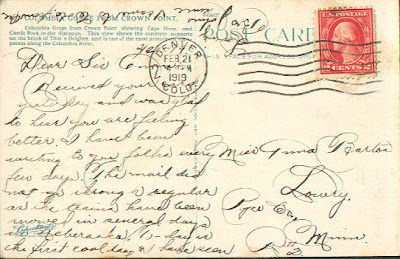 COLUMBIA GORGE FROM CROWN POINT.
Columbia Gorge from Crown Point, showing Cape Horn and
Castle Rock in the distance. This view shows the concrete
on the brink of Thor's Heights, and is one of the most
points along the Columbia River.
POST CARD
THIS SPACE FOR ADDRESS ONLY
DENVER
FEB 21
1919
COLO.
U.S. POSTAGE
CENTS 2
Dear Sis
Received your
and was glad
to hear you are feeling
better. I have been
writing to you folks every
few days. The mail did
not go through regular
as the trains have been
in several days
in Nebraska. To-day is
the first cool day I have seen
Miss Anna Barton
Lowry,
Pope Co.
Minn.
R 2